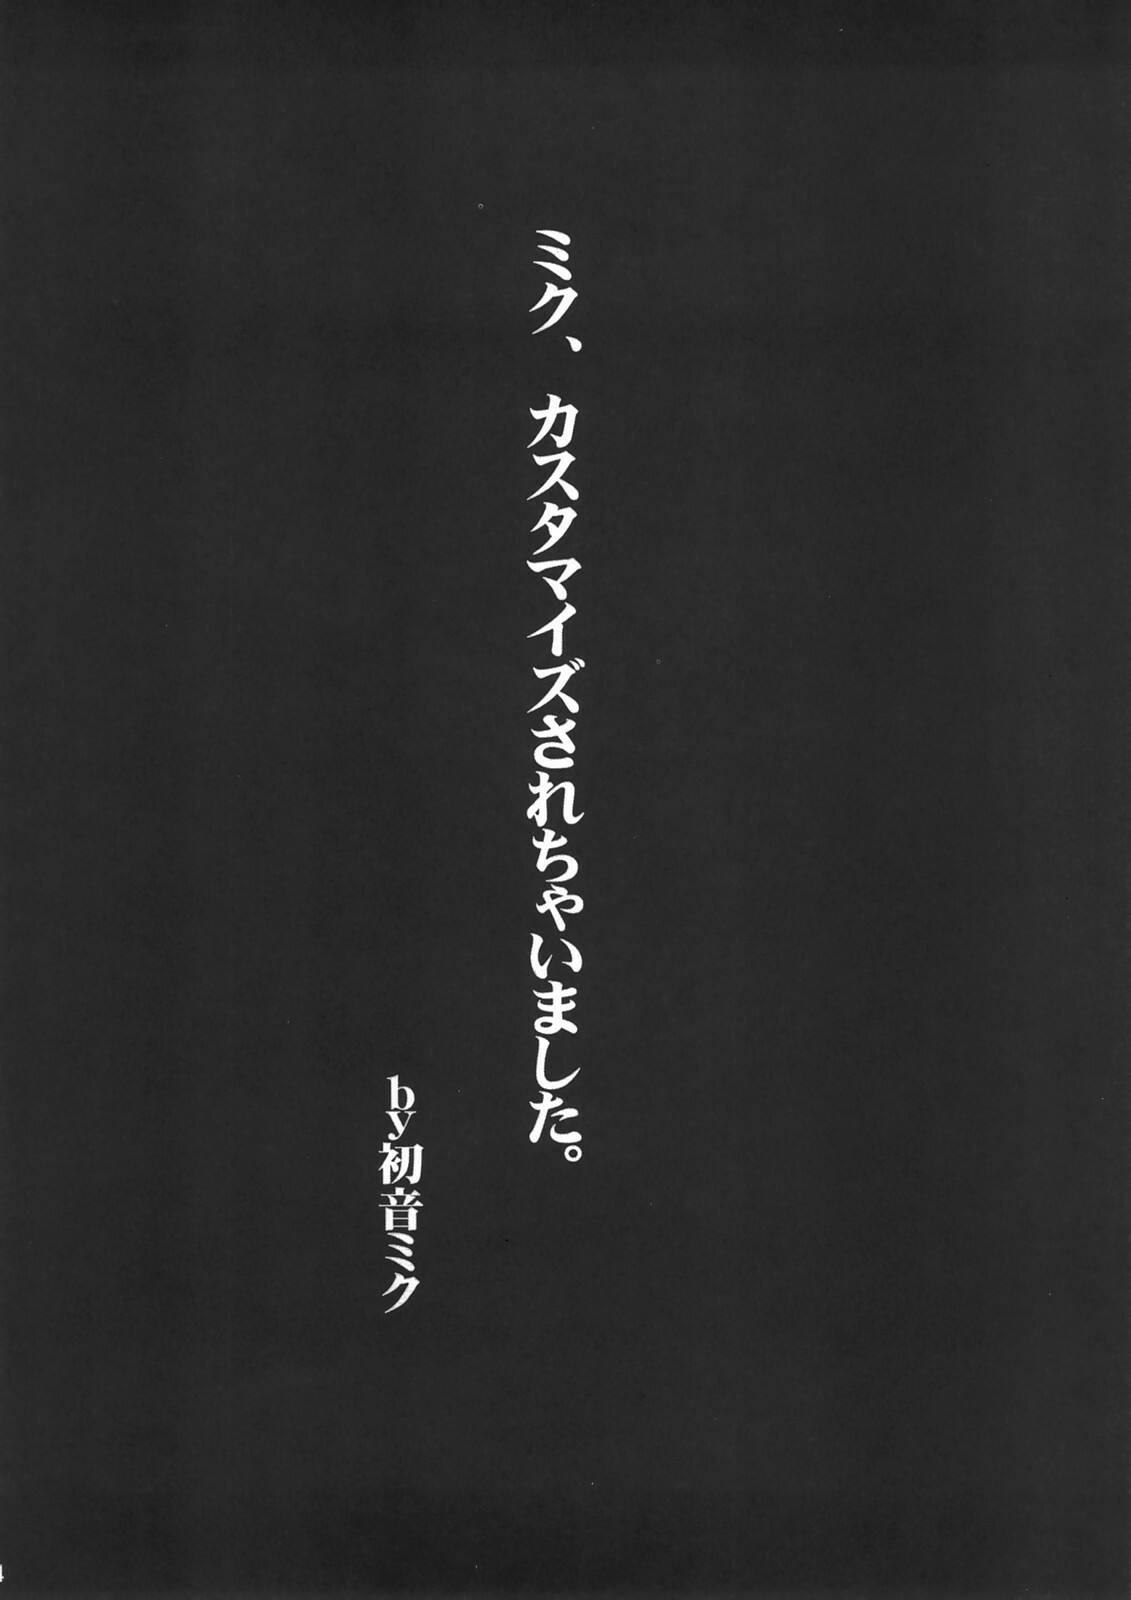 ミク、 カスタマイズされちゃいました。
by初音ミク
4